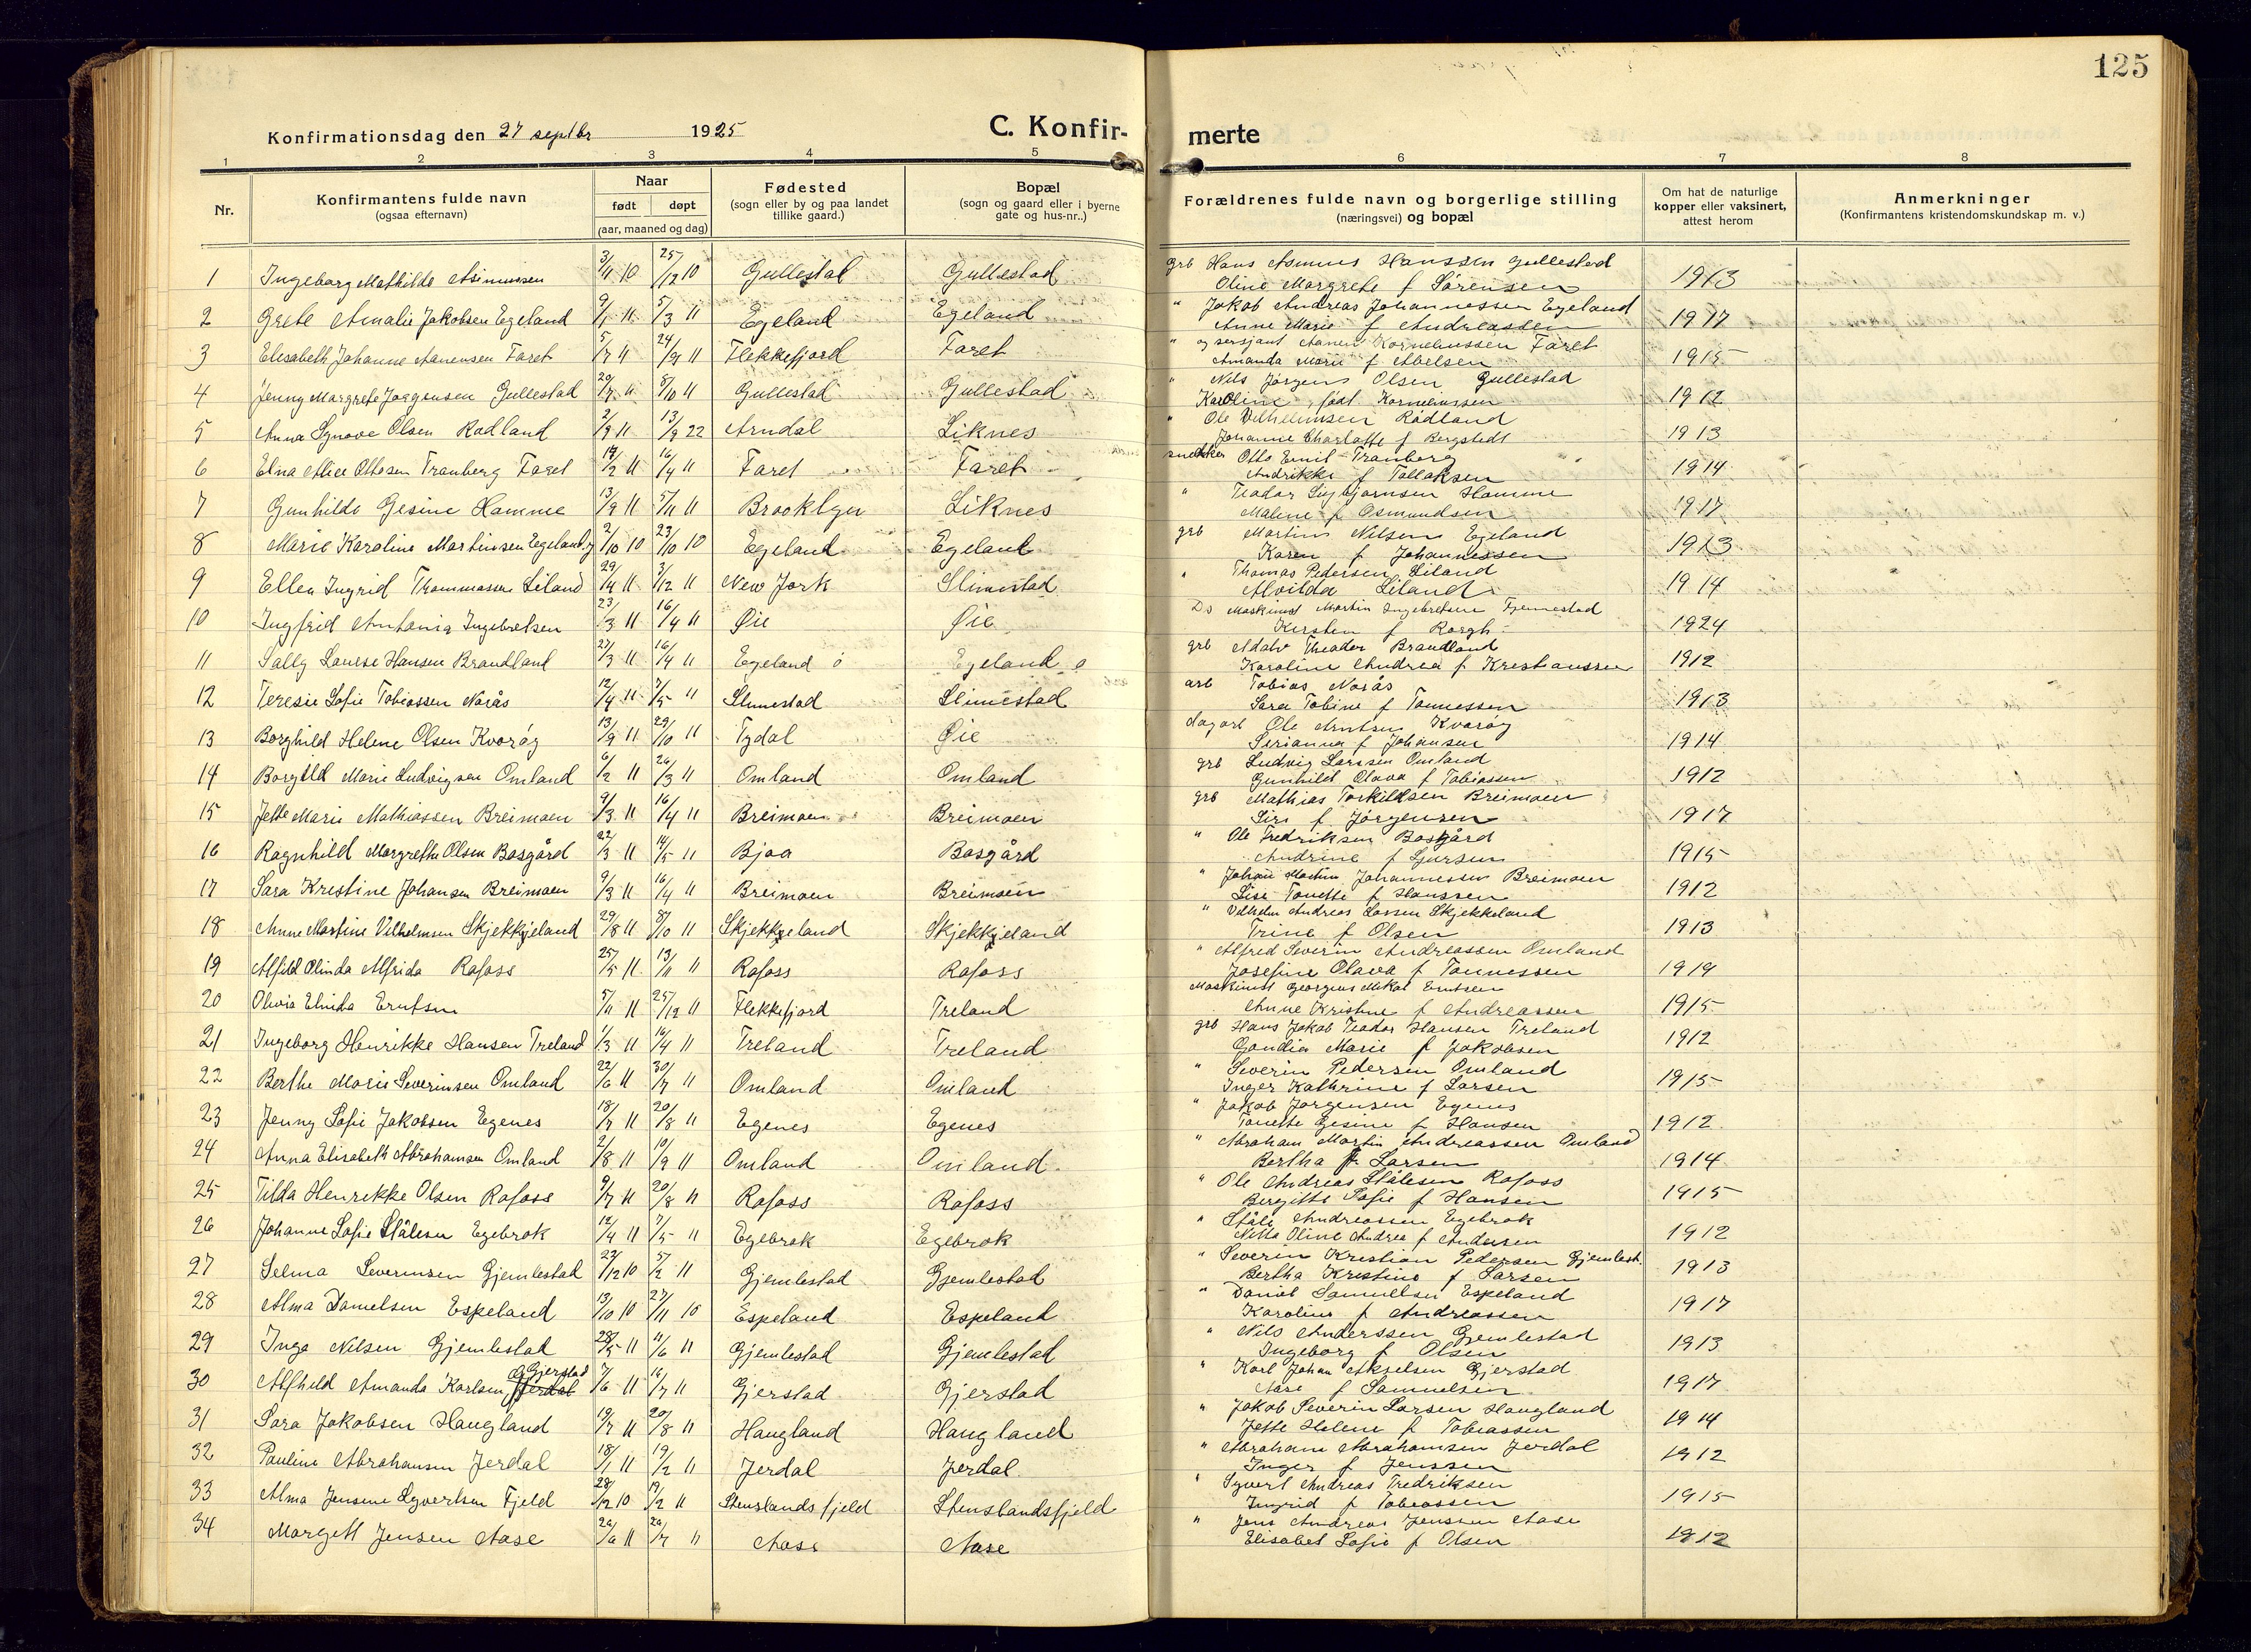 125
Konfirmationsdag den 27 septbr 1925
C. Konfirmerte
1 2 3 4 5 6 7 8
Nr.
Konfirmantens fulde navn
(ogsaa efternavn)
Naar
født døpt
(aar, maaned og dag)
Fødested
(sogn eller by og paa landet
tillike gaard.)
Bopæl
(sogn og gaard eller i byerne
gate og hus-nr..)
Forældrenes fulde navn og borgerlige stilling
(næringsvei) og bopæl
Om hat de naturlige
kopper eller vaksinert,
attest herom
Anmerkninger
(Konfirmantens kristendomskundskap m. v.)
1 Ingeborg Mathilde Asimussen 3/11 10 25/12 10 Gullestad Gullestad grb Hans Asmus Hanssen Gullestad 1913
Oline Margrete f Sørensen
2 Grete Amalie Jakobsen Egeland 9/1 11 5/3 11 Egeland Egeland " Jakob Andreas Johannessen Egeland 1917
Anne Marie f Andreassen
3 Elisabeth Johanne Aanensen Faret 5/7 11 24/9 11 Flekkefjord Faret " og sersjant Aanen Kornelius­sen Faret 1915
Amanda Marie f Abelsen
4 Jenny Margrete Jørgensen Gullestad 20/9 11 8/10 11 Gullestad Gullestad " Nils Jørgens Olsen Gullestad 1912
Karoline født Korneliussen
5 Anna Synøve Olsen Rødland 2/9 11 13/9 22 Arndal Liknes " Ole Vilhelmsen Rødland 1913
Johanne Charlotte f Bergstedt
6 Elna Alice Ottosen Tranberg Faret 19/2 11 16/4 11 Faret Faret snekker Otto Emil Tranberg 1914
Andrikke f Tollaksen
7 Gunhilde Gesine Hamme 13/9 11 5/11 11 Brooklyn Liknes " Teador Sigbjørnsen Hamme 1917
Malene f Osmundsen
8 Marie Karoline Martinsen Egeland 2/10 10 23/10 10 Egeland Egeland grb Martin Nilsen Egeland 1913
Karen f Johannessen
9 Ellen Ingrid Thommassen Liland 29/4 11 3/12 11 New York Slimestad " Thomas Pedersen Liland 1914
Alvilda Liland
10 Ingfrid Antonia Ingebretsen 23/3 11 16/4 11 Øie Øie Ds Maskinist Martin Ingebretsen Fjennestad 1924
Kirsten f Rorgh
11 Sally Lovise Hansen Brandland 27/3 11 16/4 11 Egeland ø Egeland ø grb Adolv Theodor Brandland 1912
Karoline Andrea f Kristianssen
12 Teresie Sofie Tobiassen Norås 12/4 11 7/5 11 Slimestad Slimestad arb Tobias Norås 1913
Sara Tobine f Tønnessen
13 Borghild Helene Olsen Kvorøy 13/9 11 29/10 11 Tydal Øie dagarb Ole Arntsen Kvorøy 1914
Serianna f Johansen
14 Borgild Marie Ludvigsen Omland 6/2 11 26/3 11 Omland Omland grb Ludvig Larssen Omland 1912
Gunhild Olava f Tobiassen
15 Jette Marie Mathiassen Breimoen 9/3 11 16/4 11 Breimoen Breimoen grb Mathias Torkildsen Breimoen 1917
Siri f Jørgensen
16 Ragnhild Margrethe Olsen Bosgård 22/3 11 14/5 11 Bjaa Bosgård " Ole Fredriksen Bosgård 1915
Andrine f Sjursen
17 Sara Kristine Johansen Breimoen 9/3 11 16/4 11 Breimoen Breimoen " Johan Martin Johannessen Breimoen 1912
Lise Tonette f Hanssen
18 Anne Martine Vilhelmsen Skjekkjeland 29/8 11 8/10 11 Skjekkjeland Skjekkjeland " Vilhelm Andreas Larsen Skjekkeland 1913
Trine f Olsen
19 Alfild Olinda Alfrida Rafoss 25/5 11 13/11 11 Rafoss Rafoss " Alfred Severin Andreassen Omland 1919
Josefine Olava f Tønnessen
20 Olivia Elvida Erntsen 5/11 11 25/12 11 Flekkefjord Treland Maskinist Georgius Mikal Erntsen 1915
Anne Kristine f Andreassen
21 Ingeborg Henrikke Hansen Treland 1/3 11 16/4 11 Treland Treland grb Hans Jakob Teador Hansen Treland 1912
Gondia Marie f Jakobsen
22 Berthe Marie Severinsen Omland 22/6 11 30/7 11 Omland Omland " Severin Pedersen Omland 1915
Inger Kathrine f Larsen
23 Jenny Sofie Jakobsen Egenes 18/7 11 20/8 11 Egenes Egenes " Jakob Jørgensen Egenes 1912
Tonette Gesine f Hansen
24 Anna Elisabeth Abrahamsen Omland 2/8 11 10/9 11 Omland Omland " Abraham Martin Andreassen Omland 1914
Bertha f Larsen
25 Tilda Henrikke Olsen Rafoss 9/7 11 20/8 11 Rafoss Rafoss " Ole Andreas Stålesen Rafoss 1915
Bergitte Sofie f Hansen
26 Johanne Sofie Stålesen Egebrok 12/4 11 7/5 11 Egebrok Egebrok " Ståle Andreassen Egebrok 1912
Nilla Oline Andrea f Andersen
27 Selma Severinsen Gjemlestad 27/12 10 5/2 11 Gjemlestad Gjemlestad " Severin Kristian Pedersen Gjemlest. 1913
Bertha Kristine f Larsen
28 Alma Danielsen Espeland 13/10 10 27/11 10 Espeland Espeland " Daniel Samuelsen Espeland 1917
Karoline f Andreassen
29 Inga Nilsen Gjemlestad 28/5 11 11/6 11 Gjemlestad Gjemlestad " Nils Anderssen Gjemlestad 1913
Ingeborg f Olsen
30 Alfhild Amanda Karlsen Gjerstad 7/6 11 16/7 11 Gjerstad Gjerstad " Karl Johan Akselsen Gjerstad 1917
Aase f Samuelsen
31 Sara Jakobsen Haugland 19/7 11 20/8 11 Haugland Haugland " Jakob Severin Larsen Haugland 1914
Jette Helene f Tobiassen
32 Pauline Abrahamsen Jerdal 18/1 11 19/2 11 Jerdal Jerdal " Abraham Abrahamsen Jerdal 1912
Inger f Jenssen
33 Alma Jensine Syvertsen Fjeld 28/12 10 19/2 11 Stenslandsfjeld Stenslandsfjeld " Syvert Andreas Fredriksen 1915
Ingrid f Tobiassen
34 Margett Jensen Aase 29/6 11 29/7 11 Aase Aase " Jens Andreas Jenssen Aase 1912
Elisabet Sofie f Olsen